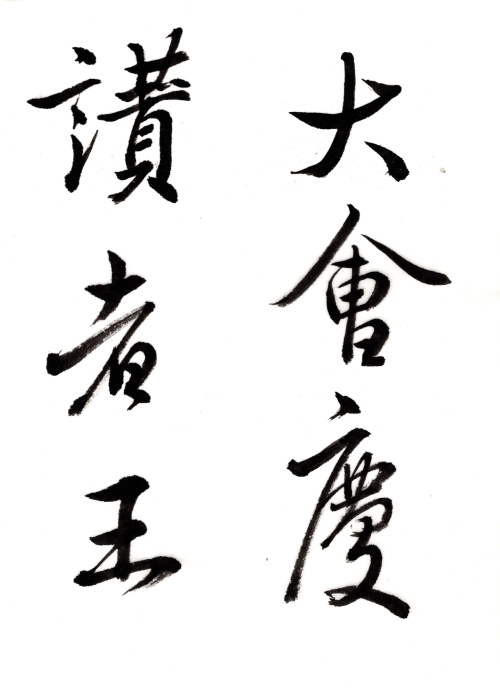 大會慶
讃者王